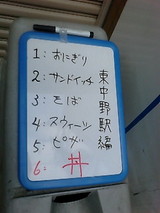 1:おにぎり
2:サンドイッチ
3:そば
4:スウィーツ
5:ピザ
6:丼
東中野駅編